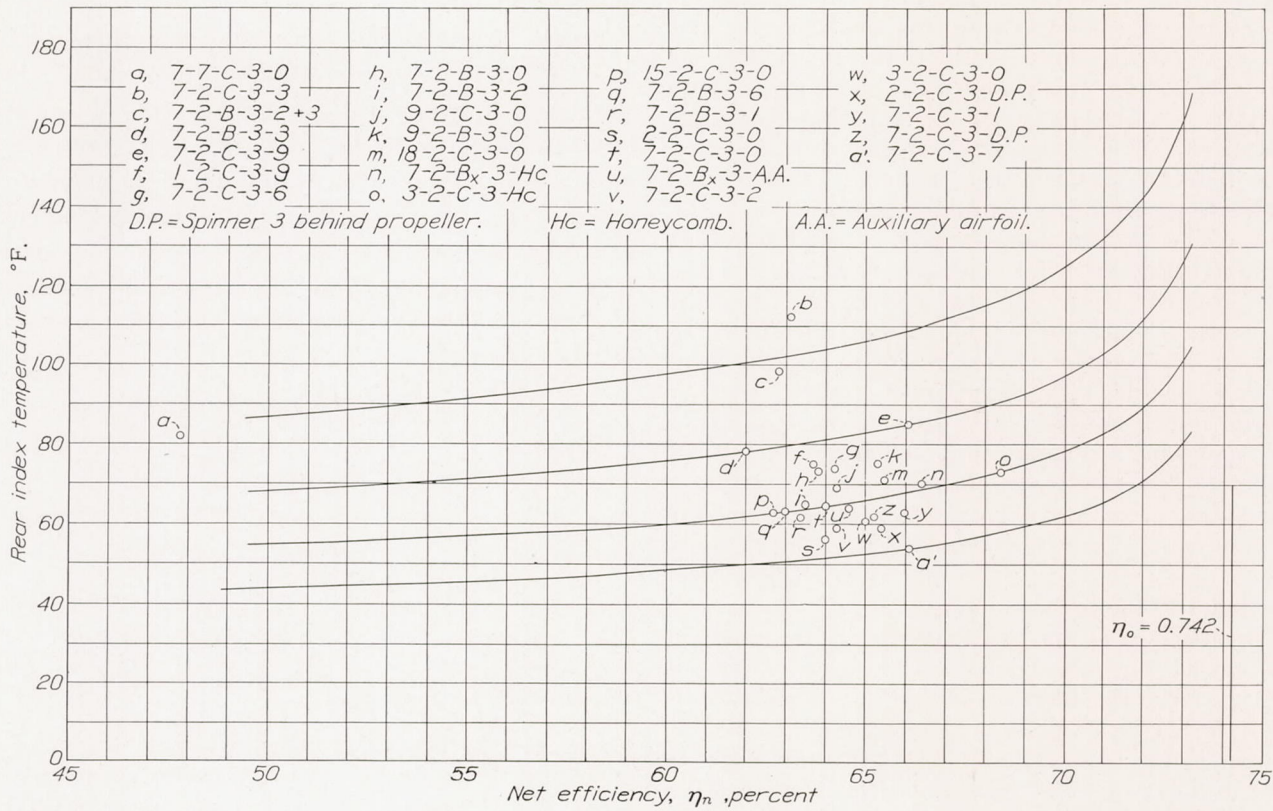 180
160
140
120
100
80
60
40
20
0
Rear index temperature, °F.
a, 7-7-C-3-0
b, 7-2-C-3-3
c, 7-2-B-3-2+3
d, 7-2-B-3-3
e, 7-2-C-3-9
f, 1-2-C-3-9
g, 7-2-C-3-6
h, 7-2-B-3-0
i, 7-2-B-3-2
j, 9-2-C-3-0
k, 9-2-B-3-0
m, 18-2-C-3-0
n, 7-2-Bx-3-Hc
o, 3-2-C-3-Hc
p, 15-2-C-3-0
q, 7-2-B-3-6
r, 7-2-B-3-1
s, 2-2-C-3-0
t, 7-2-C-3-0
u, 7-2-Bx-3-A.A.
v, 7-2-C-3-2
w, 3-2-C-3-0
x, 2-2-C-3-D.P.
y, 7-2-C-3-1
z, 7-2-C-3-D.P.
a'. 7-2-C-3-7
D.P.=Spinner 3 behind propeller. Hc = Honeycomb. A.A.= Auxiliary airfoil.
b
c
a
e
d
f
g
k
h
j
m
n
o
i
p
q
r
t
u
z
y
s
v
w
x
a'
η₀ = 0.742
45 50 55 60 65 70 75
Net efficiency, ηn ,percent